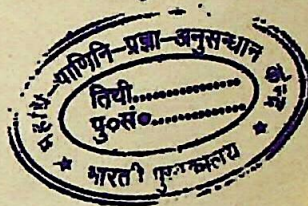 महर्षि–पाणिनि–प्रज्ञा–अनुसन्धान
तिथी..................
पु०सं०..................
★ भारती पुस्तकालय ★